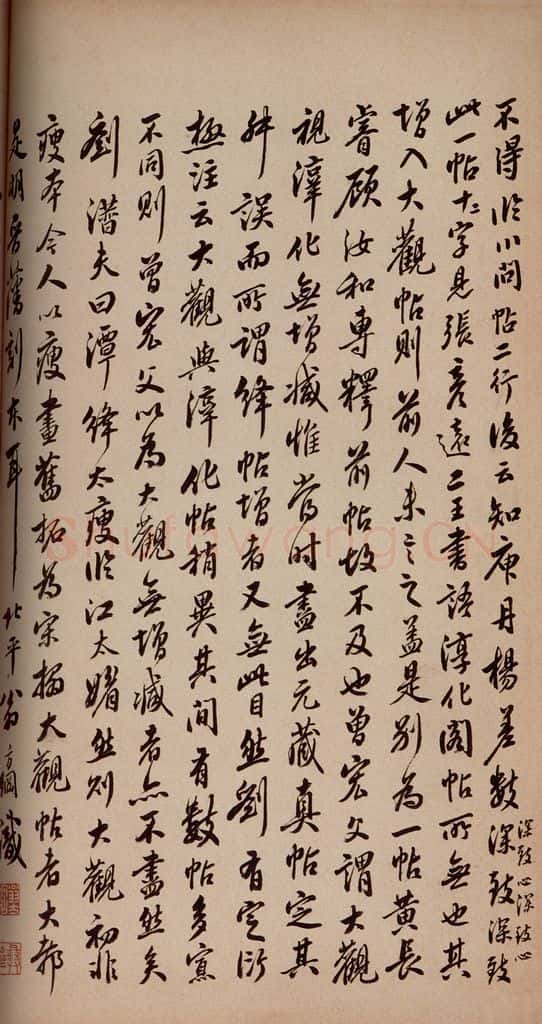 不得臨川問帖二行後云知庾丹楊差數深致深致
深致心深致心
此一帖十二字見張彥遠二王書語淳化閣帖所無也其
增入大觀帖則前人未言之蓋是別為一帖黃長
睿顧汝和專釋前帖故不及也曾宏父謂大觀
視淳化無增減惟當時盡出元藏真帖定其
舛誤而所謂絳帖增者又無此目然劉有定衍
極注云大觀與淳化帖稍異其間有數帖多寡
不同則曾宏父以為大觀無增減者亦不盡然矣
劉潛夫曰潭絳太瘦臨江太媚然則大觀初非
瘦本今人以瘦畫舊拓為宋搨大觀帖者大都
是明晉藩刻本耳 北平翁方綱識
Shufawang.CN